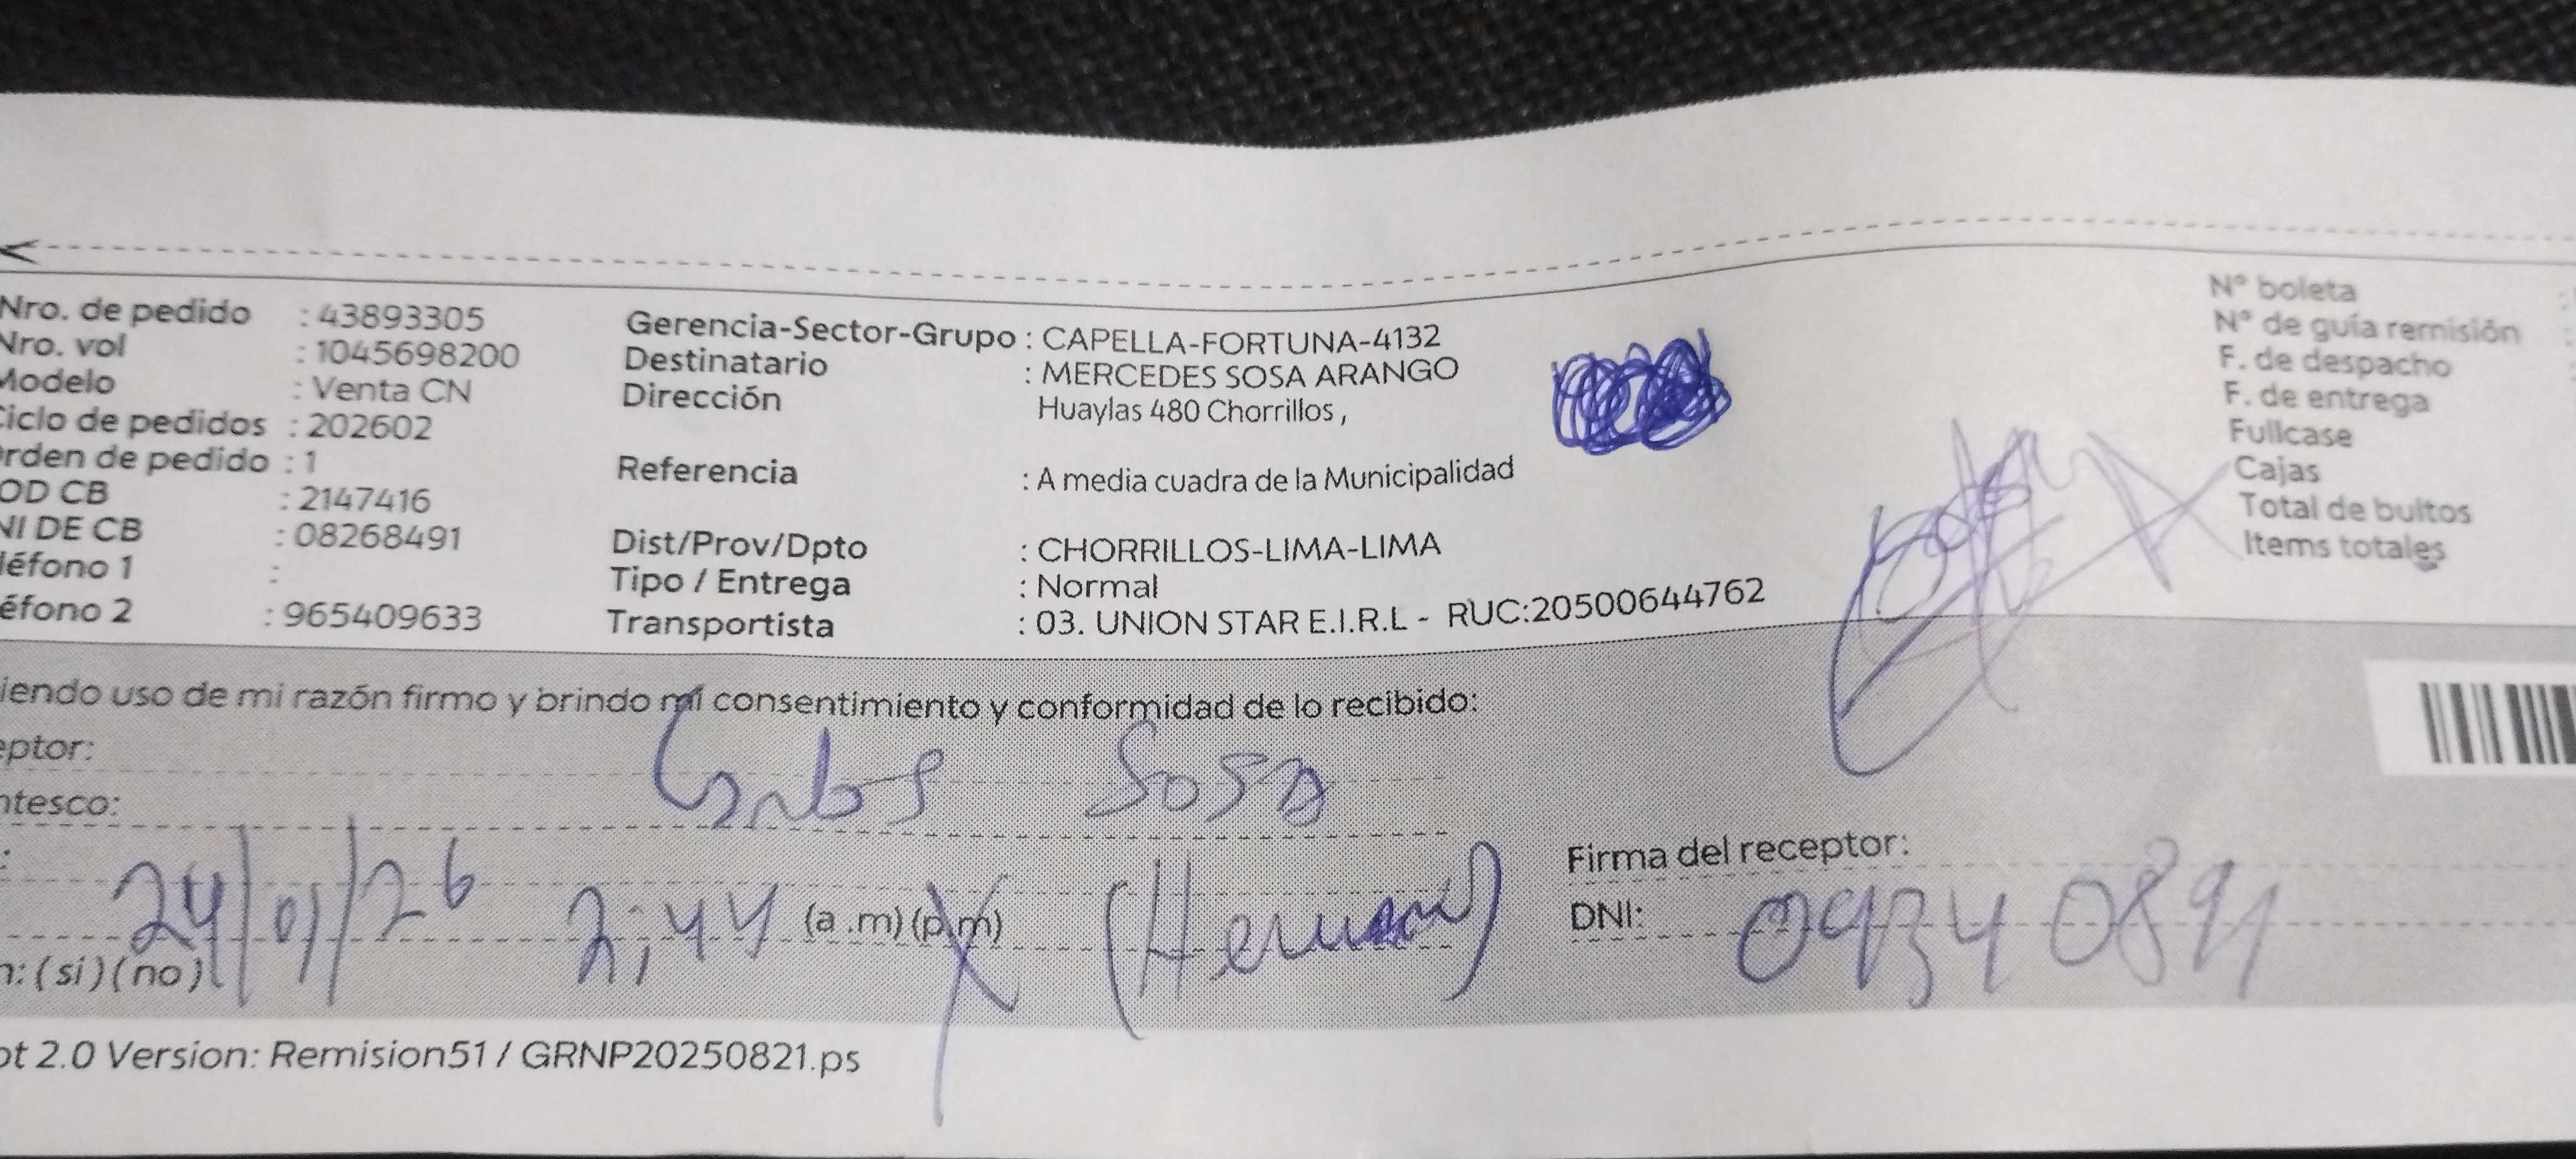 Nro. de pedido : 43893305
Nro. vol : 1045698200
Modelo : Venta CN
Ciclo de pedidos : 202602
Orden de pedido : 1
OD CB : 2147416
NI DE CB : 08268491
léfono 1 :
éfono 2 : 965409633
Gerencia-Sector-Grupo : CAPELLA-FORTUNA-4132
Destinatario : MERCEDES SOSA ARANGO
Dirección Huaylas 480 Chorrillos,
Referencia : A media cuadra de la Municipalidad
Dist/Prov/Dpto : CHORRILLOS-LIMA-LIMA
Tipo / Entrega : Normal
Transportista : 03. UNION STAR E.I.R.L - RUC:20500644762
N° boleta :
N° de guía remisión :
F. de despacho :
F. de entrega
Fullcase
Cajas
Total de bultos
Items totales
iendo uso de mi razón firmo y brindo mi consentimiento y conformidad de lo recibido:
eptor: Carlos Sosa
ntesco:
: 24/01/26 2;44 (a.m)(p.m) (Hermano)
Firma del receptor:
DNI: 09340891
n: (si)(no)
ot 2.0 Version: Remision51 / GRNP20250821.ps